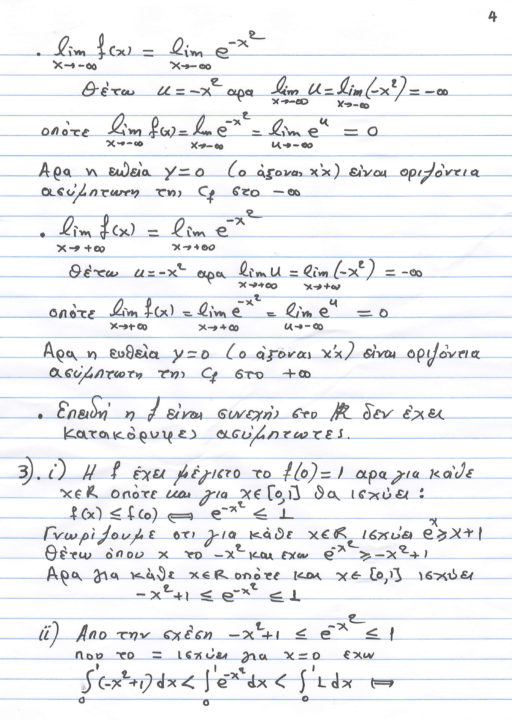 4
• lim f(x) = lim e^{-x²}
x→-∞ x→-∞
Θέτω u = -x² αρα lim u = lim(-x²) = -∞
x→-∞ x→-∞
οπότε lim f(x) = lim e^{-x²} = lim e^u = 0
x→-∞ x→-∞ u→-∞
Αρα η ευθεία y=0 (ο άξονας x'x) είναι οριζόντια
ασύμπτωτη της C_f στο -∞
• lim f(x) = lim e^{-x²}
x→+∞ x→+∞
Θέτω u = -x² αρα lim u = lim(-x²) = -∞
x→+∞ x→+∞
οπότε lim f(x) = lim e^{-x²} = lim e^u = 0
x→+∞ x→+∞ u→-∞
Αρα η ευθεία y=0 (ο άξονας x'x) είναι οριζόντια
ασύμπτωτη της C_f στο +∞
• Επειδή η f είναι συνεχής στο ℝ δεν έχει
κατακόρυφες ασύμπτωτες.
3). i) Η f έχει μέγιστο το f(0)=1 αρα για κάθε
x∈ℝ οπότε και για x∈[0,1] θα ισχύει:
f(x) ≤ f(0) ⟺ e^{-x²} ≤ 1
Γνωρίζουμε οτι για κάθε x∈ℝ ισχύει e^x ≥ x+1
Θέτω όπου x το -x² και έχω e^{-x²} ≥ -x²+1
Αρα για κάθε x∈ℝ οπότε και x∈[0,1] ισχύει
-x²+1 ≤ e^{-x²} ≤ 1
ii) Απο την σχέση -x²+1 ≤ e^{-x²} ≤ 1
που το = ισχύει για x=0 έχω
∫₀¹(-x²+1)dx < ∫₀¹e^{-x²}dx < ∫₀¹1dx ⟺